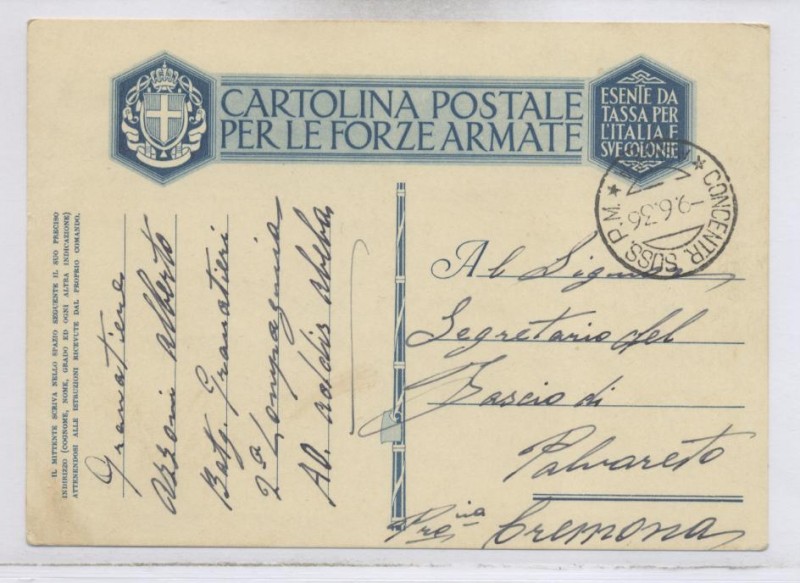 CARTOLINA POSTALE
PER LE FORZE ARMATE
ESENTE DA
TASSA PER
L'ITALIA E
SVE COLONIE
★ CONCENTR. SUSS. P.M. ★
-9.6.36
IL MITTENTE SCRIVA NELLO SPAZIO SEGUENTE IL SUO PRECISO
INDIRIZZO (COGNOME, NOME, GRADO ED OGNI ALTRA INDICAZIONE)
ATTENENDOSI ALLE ISTRUZIONI RICEVUTE DAL PROPRIO COMANDO.
Granatiere
Azzoni Alberto
Batg. Granatieri
2ª Compagnia
Addis Abeba
Al Signor
Segretario del
Fascio di
Palvareto
Pro.cia Cremona